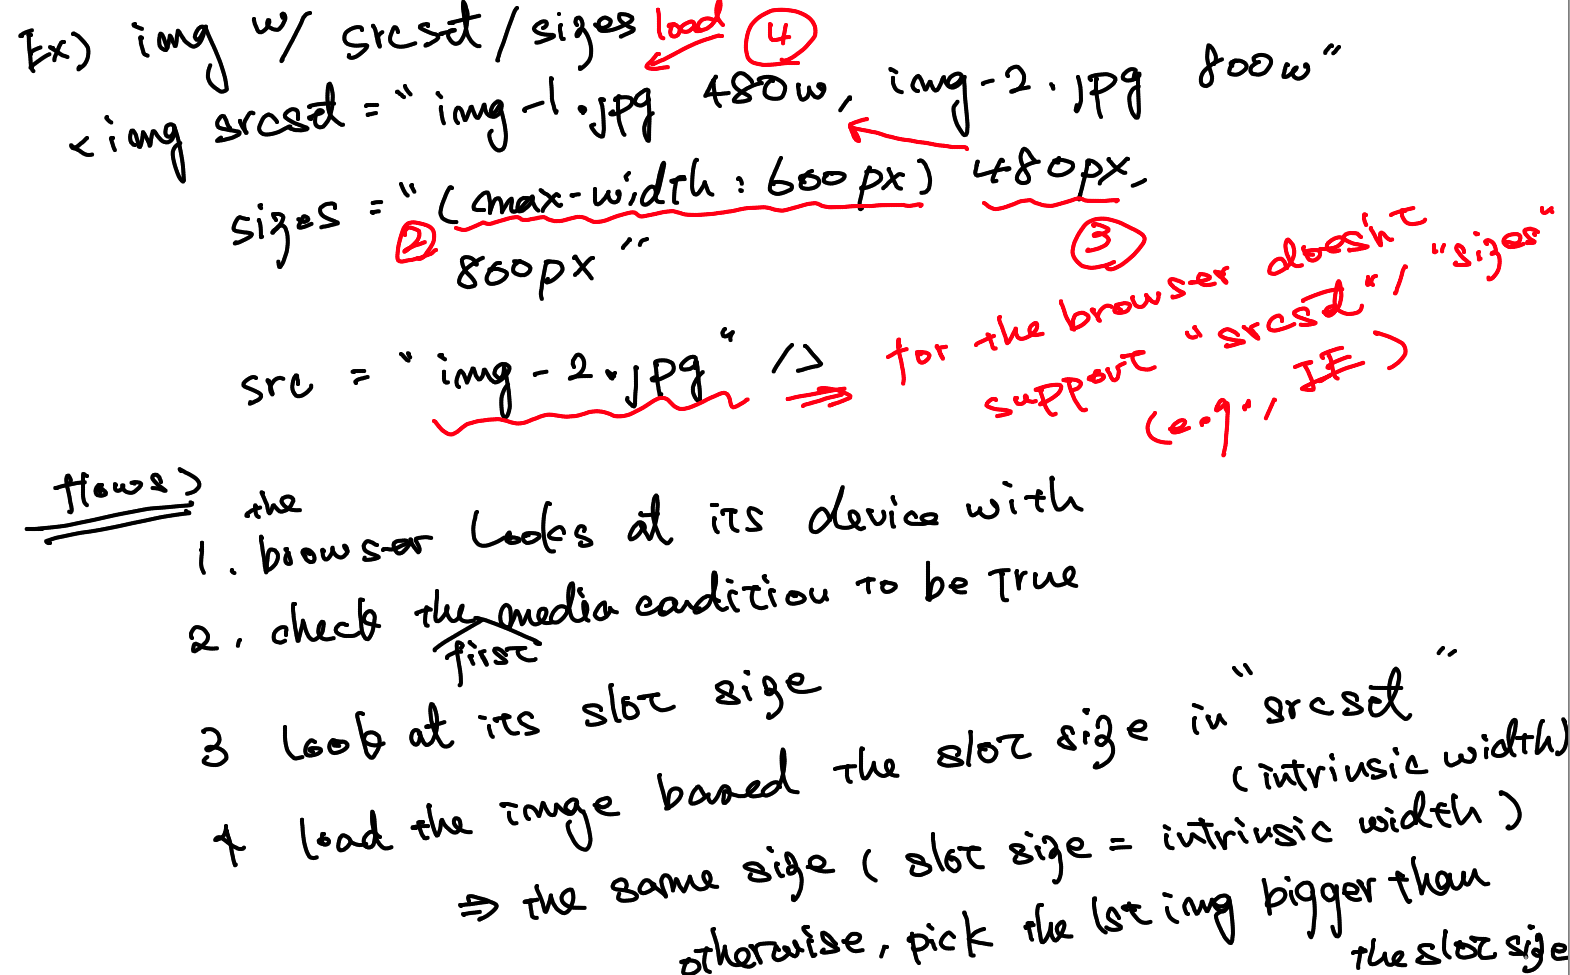 Ex) img w/ srcset/sizes load ④
<img srcset = "img-1.jpg 480w, img-2.jpg 800w"
sizes = "(max-width: 600px) 480px,
② 800px" ③
src = "img-2.jpg" /> ⇒ for the browser doesn't
support "srcset", "sizes"
(e.g., IE)
flows)
the
1. browser looks at its device with
2. check the media condition to be true
first
3 look at its slot size
4 load the image based the slot size in "srcset"
(intrinsic width)
⇒ the same size (slot size = intrinsic width)
otherwise, pick the 1st img bigger than
the slot size